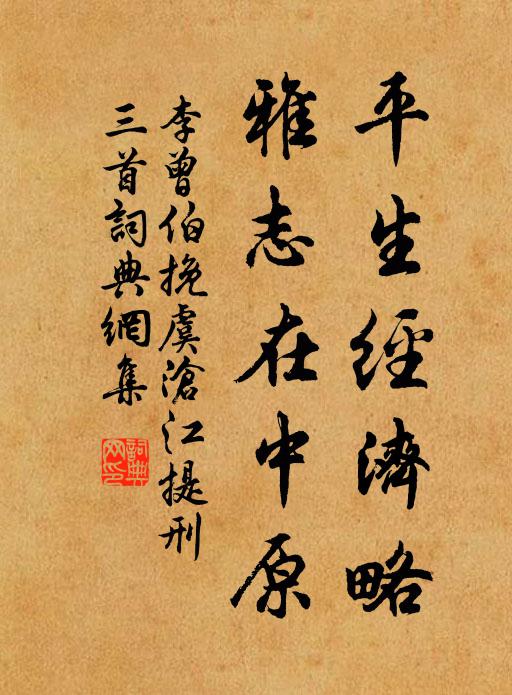 平生經濟略
雅志在中原
李曾伯挽虞滄江提刑
三首詞典網集
詞典网印